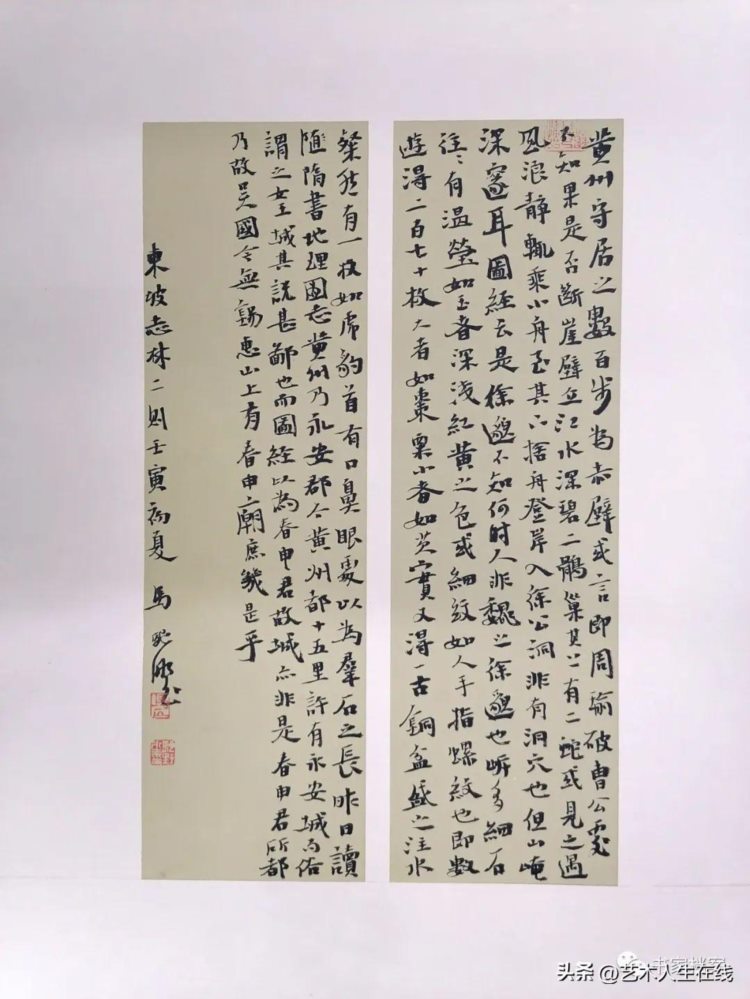 黄州守居之數百步為赤壁或言即周瑜破曹公處
不知果是否斷崖壁立江水深碧二鶻巢其上有二蛇或見之遇
風浪静輒乘小舟至其下捨舟登岸入徐公洞非有洞穴也但山崦
深邃耳圖經云是徐邈不知何時人非魏之徐邈也岸多細石
往〻有温瑩如玉者深淺紅黄之色或細紋如人手指螺紋也即數
遊得二百七十枚大者如棗栗小者如芡實又得一古銅盆盛之注水
粲然有一枚如虎豹首有口鼻眼處以為羣石之長昨日讀
隋書地理圖志黄州乃永安郡今黄州都十五里許有永安城而俗
謂之女王城其説甚鄙也而圖經以為春申君故城亦非是春申君所都
乃故吴國今無錫惠山上有春申廟庶幾是乎
東坡志林二則壬寅初夏 馬
书家档案
头条 @艺术人生在线